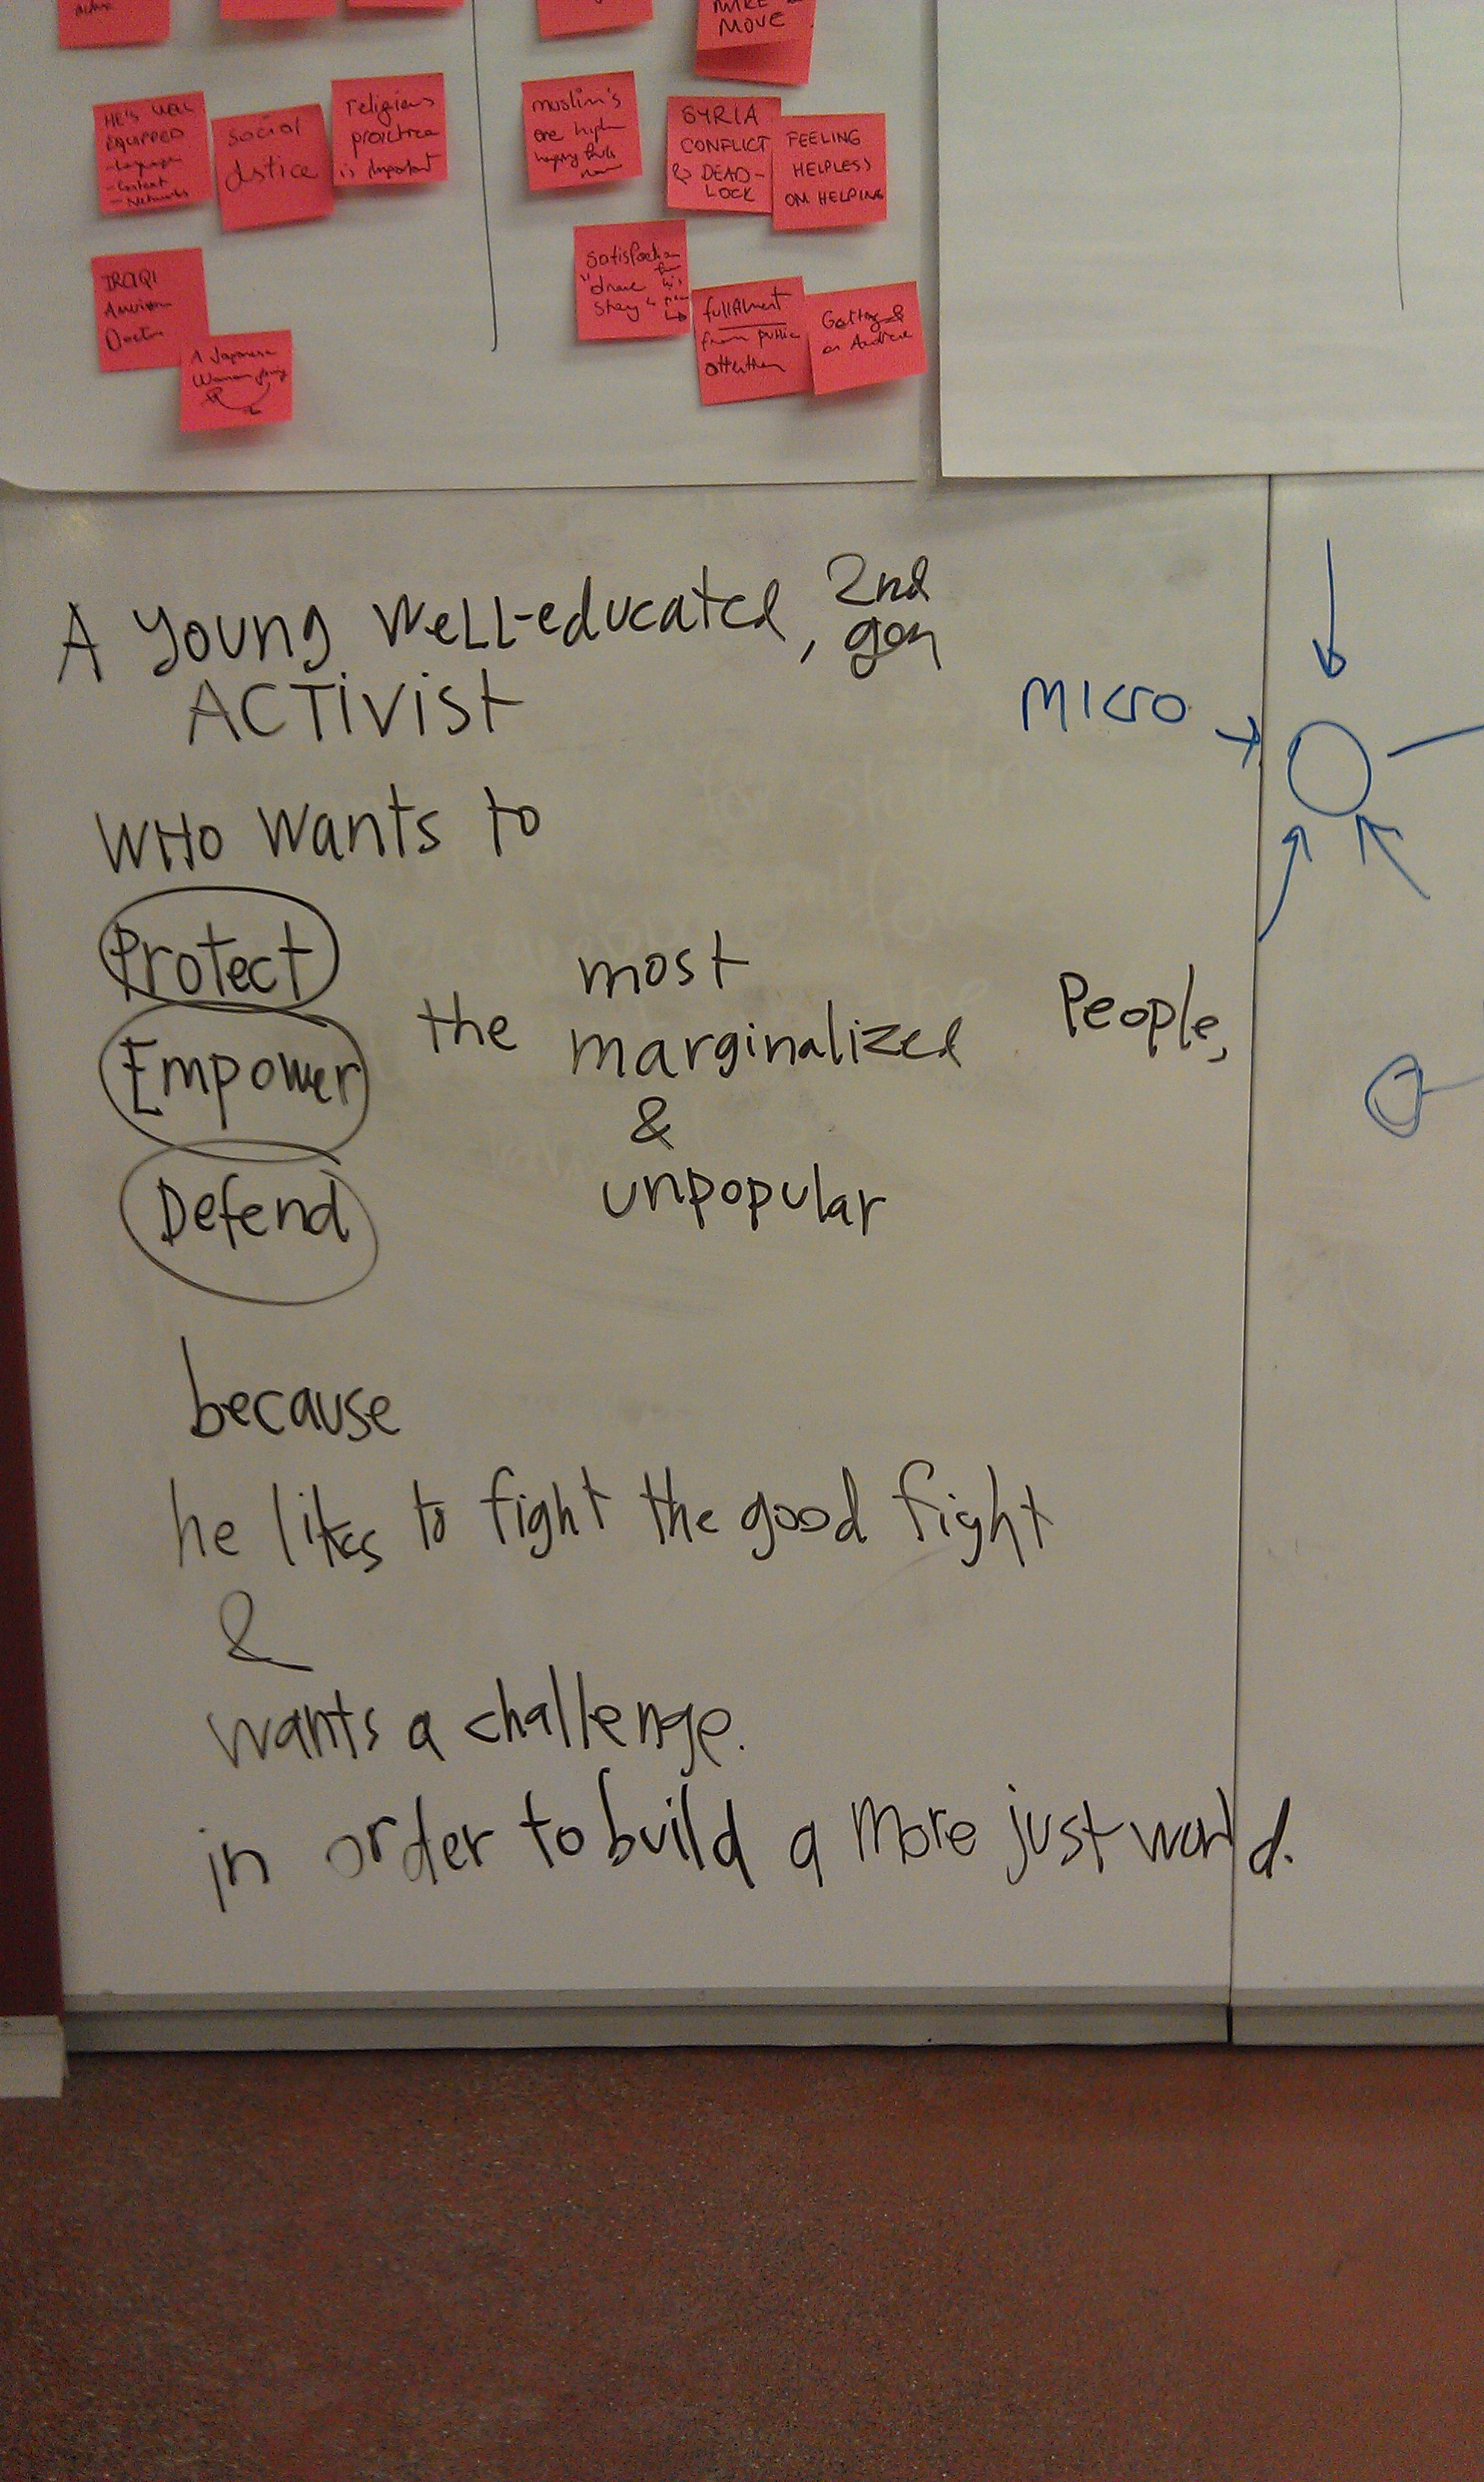 MOVE
HE'S WELL
EQUIPPED
- Language
- Context
- Networks
social
Justice
religious
practice
is important
muslim's
are high
SYRIA
CONFLICT
& DEAD-
LOCK
FEELING
HELPLESS
ON HELPING
IRAQI
American
Doctor
A Japanese
Woman
satisfaction
fullfilment
from public
attention
Getting
an Audience
A young well-educated, 2nd
gen
ACTIVIST
WHO wants to
Protect
Empower
Defend
the most
marginalized
&
unpopular
People,
because
he likes to fight the good fight
&
wants a challenge.
in order to build a more just world.
MICRO